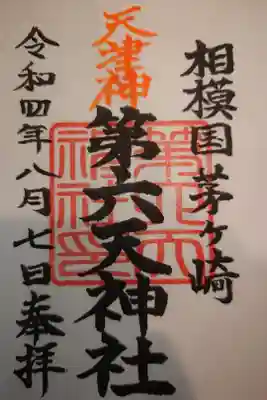 相模国茅ヶ崎
天津神
第六天神社
令和四年八月七日奉拝
第六天神社印